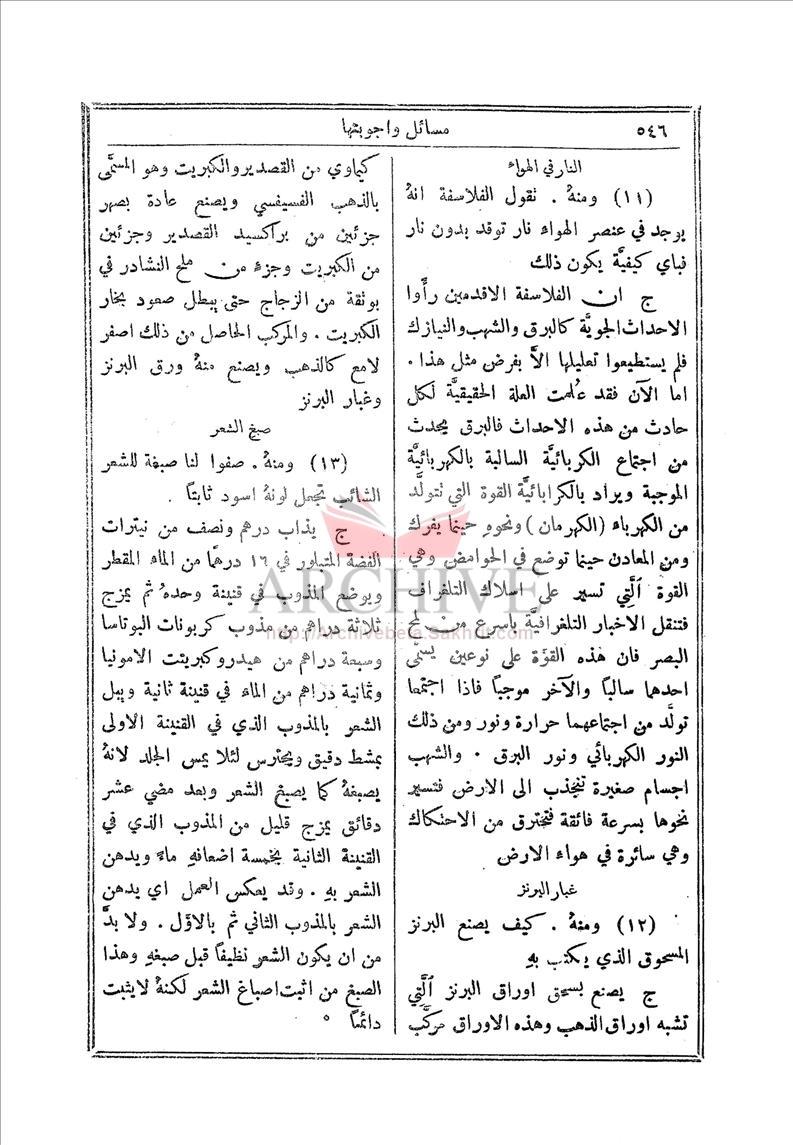 ٥٤٦
مسائل واجوبتها
النار في الهواء
(١١) ومنهُ . تقول الفلاسفة انهُ
يوجد في عنصر الهواء نار توقد بدون نار
فباي كيفيَّة يكون ذلك
ج ان الفلاسفة الاقدمين رأَوا
الاحداث الجويَّة كالبرق والشهب والنيازك
فلم يستطيعوا تعليلها الاَّ بفرض مثل هذا .
اما الآن فقد عُلمت العلة الحقيقيَّة لكل
حادث من هذه الاحداث فالبرق يحدث
من اجتماع الكربائيَّة السالبة بالكهربائيَّة
الموجبة ويراد بالكرابائيَّة القوة التي نتولَّد
من الكهرباء (الكهرمان) ونحوهِ حينما يفرك
ومن المعادن حينما توضع في الحوامض وهي
القوة الَّتي تسير على اسلاك التلغراف
فتنقل الاخبار التلغرافيَّة باسرع من لمح
البصر فان هذه القوَّة على نوعين يسمَّى
احدها سالبًا والآخر موجبًا فاذا اجتمعا
تولَّد من اجتماعهما حرارة ونور ومن ذلك
النور الكهربائي ونور البرق . والشهب
اجسام صغيرة تنجذب الى الارض فتسير
نحوها بسرعة فائقة فتحترق من الاحتكاك
وهي سائرة في هواء الارض
غبار البرنز
(١٢) ومنهُ . كيف يصنع البرنز
المسحوق الذي يكتب بهِ
ج يصنع بسحق اوراق البرنز الَّتي
تشبه اوراق الذهب وهذه الاوراق مركَّب
كيماوي من القصدير والكبريت وهو المسمَّى
بالذهب الفسيفسي ويصنع عادة بصهر
جزئين من براكسيد القصدير وجزئين
من الكبريت وجزء من ملح النشادر في
بوتقة من الزجاج حتى يبطل صعود بخار
الكبريت . والمركب الحاصل من ذلك اصفر
لامع كالذهب ويصنع منهُ ورق البرنز
وغبار البرنز
صبغ الشعر
(١٣) ومنهُ . صفوا لنا صبغة للشعر
الشائب تجعل لونهُ اسود ثابتًا .
ج يذاب درهم ونصف من نيترات
الفضة المتبلور في ١٦ درهمًا من الماء المقطر
ويوضع المذوب في قنينة وحدهُ ثم يمزج
ثلاثة دراهم من مذوب كربونات البوتاسا
وسبعة دراهم من هيدروكبريتت الامونيا
وثمانية دراهم من الماء في قنينة ثانية ويبل
الشعر بالمذوب الذي في القنينة الاولى
بمشط دقيق ويحترس لئلا يمس الجلد لانهُ
يصبغهُ كما يصبغ الشعر وبعد مضي عشر
دقائق يمزج قليل من المذوب الذي في
القنينة الثانية بخمسة اضعافهِ ماء ويدهن
الشعر بهِ . وقد يعكس العمل اي يدهن
الشعر بالمذوب الثاني ثم بالاوَّل . ولا بدَّ
من ان يكون الشعر نظيفًا قبل صبغهِ وهذا
الصبغ من اثبت اصباغ الشعر لكنهُ لا يثبت
دائمًا
ARCHIVE
http://Archivebeta.Sakhrit.com